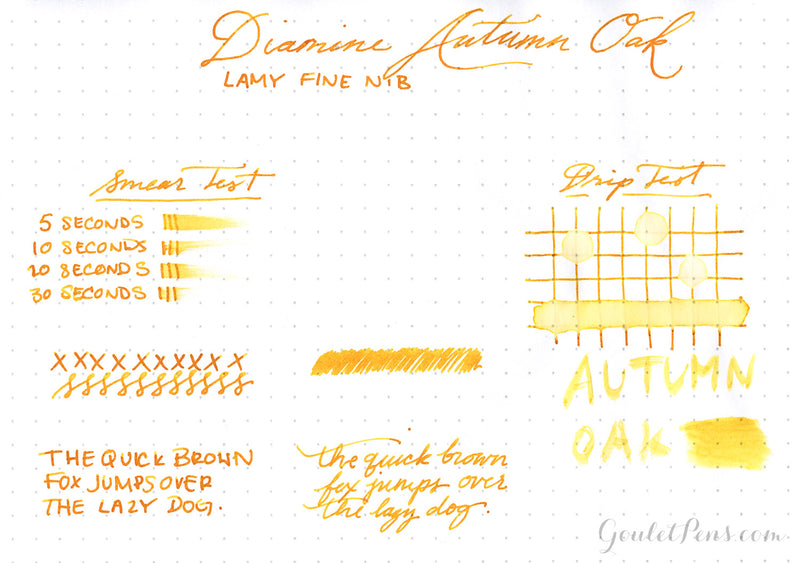 Diamine Autumn Oak
LAMY FINE NIB
Smear Test
5 SECONDS
10 SECONDS
20 SECONDS
30 SECONDS
Drip Test
XXXXXXXXXX
AUTUMN
OAK
THE QUICK BROWN
FOX JUMPS OVER
THE LAZY DOG.
the quick brown
fox jumps over
the lazy dog.
GouletPens.com